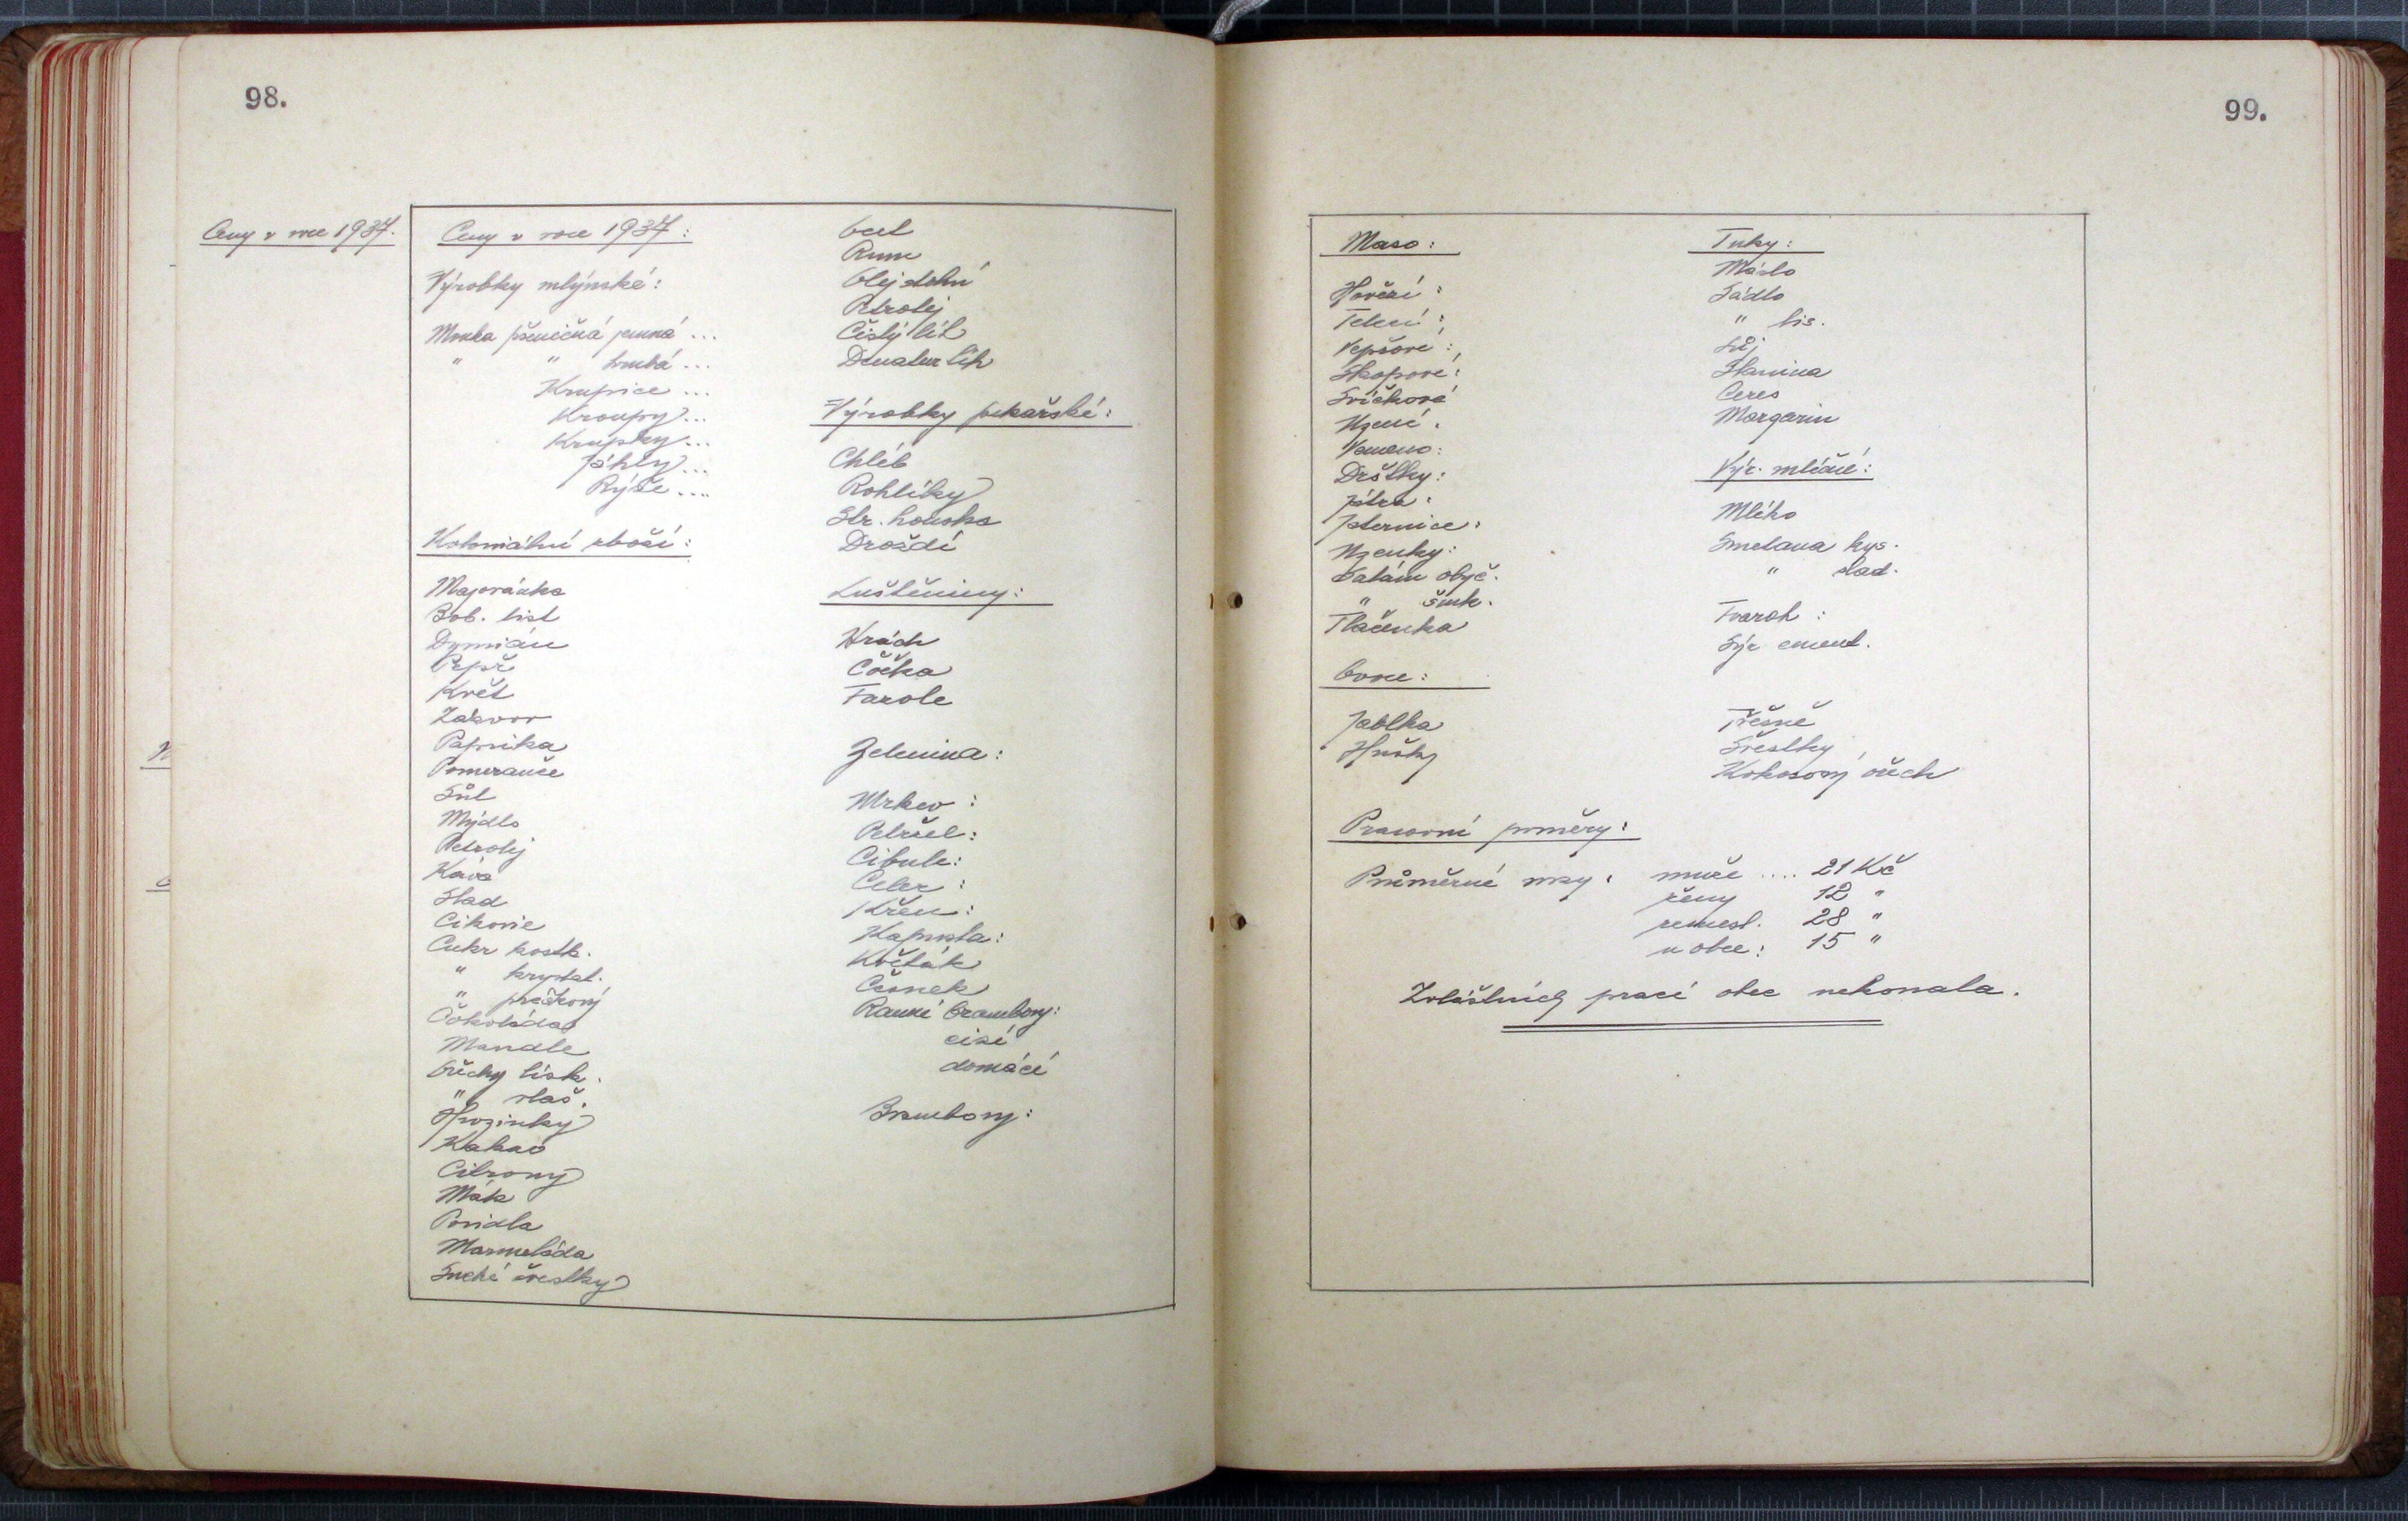 98.
Ceny v roce 1937.
Ceny v roce 1937:
Výrobky mlýnské:
Mouka pšeničná jemná ...
" " hrubá ...
Krupice ...
Kroupy ...
Krupky ...
Jáhly ...
Rýže ....
Koloniální zboží:
Majoránka
Bob. list
Dymián
Pepř
Květ
Zázvor
Paprika
Pomeranče
Sůl
Mýdlo
Petrolej
Káva
Slad
Cikorie
Cukr kostk.
" krystal.
" práškový
Čokoláda
Mandle
Ořechy lísk.
" vlaš.
Hrozinky
Kakao
Citrony
Mák
Povidla
Marmeláda
Suché švestky
Ocet
Rum
Olej stolní
Petrolej
Čistý líh
Denatur líh
Výrobky pekařské:
Chléb
Rohlíky
Str. houska
Droždí
Luštěniny:
Hrách
Čočka
Fazole
Zelenina:
Mrkev :
Petržel:
Cibule:
Celer :
Křen:
Kapusta:
Květák
Česnek
Ranné brambory:
cizí
domácí
Brambory:
99.
Maso:
Hovězí :
Telecí :
Vepřové :
Skopové:
Svíčkové
Uzené :
Vemeno:
Dršťky:
Játra :
Jaternice:
Uzenky:
Salám obyč.
" šunk.
Tlačenka
Ovoce:
Jablka
Hrušky
Tuky:
Máslo
Sádlo
" lis.
Lůj
Slanina
Ceres
Margarin
Výr. mléčné:
Mléko
Smetana kys.
" slad.
Tvaroh :
Sýr ement.
Třešně
Švestky
Kokosový ořech
Pracovní poměry:
Průměrné mzdy: muže .... 21 Kč
ženy 12 "
řemesl. 28 "
u obce: 15 "
Zvláštních prací obec nekonala.